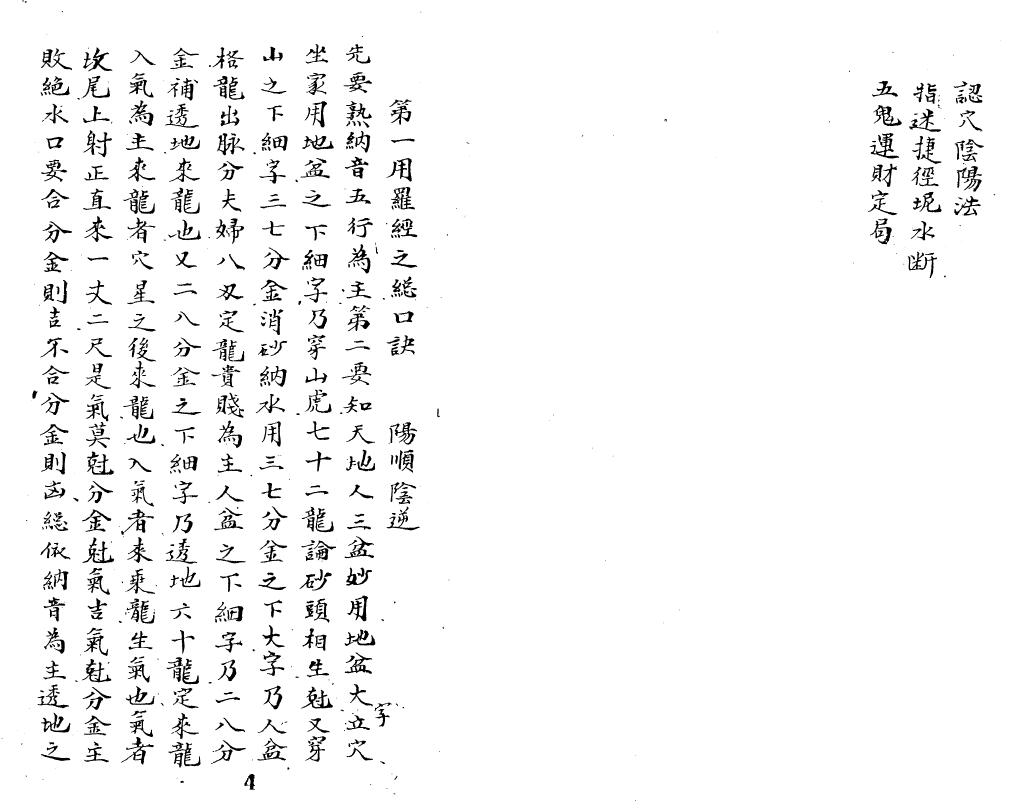 認穴陰陽法
指迷捷徑坭水断
五鬼運財定局
第一用羅經之総口訣　陽順陰逆
先要熟納音五行為主第二要知天地人三盆妙用地盆大字立穴
坐家用地盆之下細字乃穿山虎七十二龍論砂頭相生尅又穿
山之下細字三七分金消砂納水用三七分金之下大字乃人盆
格龍出脉分夫婦八刄定龍貴賤為主人盆之下細字乃二八分
金補透地來龍也又二八分金之下細字乃透地六十龍定來龍
入氣為主來龍者穴星之後來龍也入氣者來乘龍生氣也氣者
坟尾上射正直來一丈二尺是氣莫尅分金尅氣吉氣尅分金主
敗絶水口要合分金則吉不合分金則凶総依納音為主透地之
4